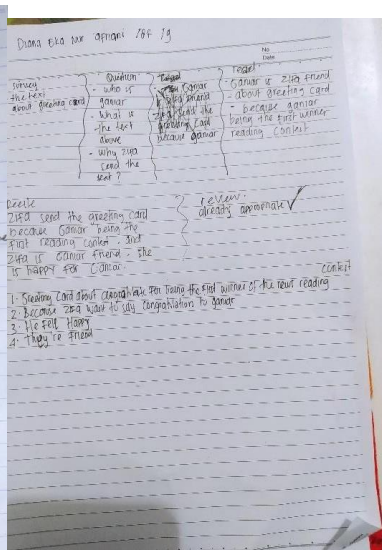 Diana Eka Nur Afriani 18F 19
No
Date
Survey
the text
about greeting card
Question
- who is
ganiar
- what is
the text
above
- why zifa
send the
text ?
Ganiar
friend
zifa send the
greeting card
because ganiar
read
Ganiar is zifa friend
- about greeting card
- because ganiar
being the first winner
reading contest
Recite
zifa send the greeting card
because Ganiar being the
first reading contest. And
zifa is Ganiar friend. She
is happy for Ganiar.
review.
already appropriate ✓
contest
1. Greeting card about congratulate for being the first winner of the news reading
2. Because zifa want to say congratulation to ganiar
3. He fell Happy
4. They're Friend